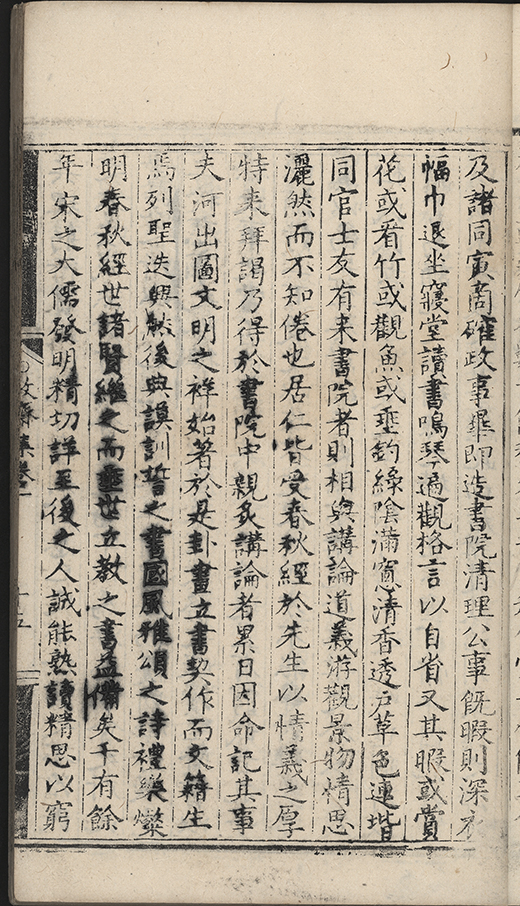 及諸同寅商確政事畢即造書院清理公事旣暇則深衣
幅巾退坐寢堂讀書鳴琴遍觀格言以自省又其暇或賞
花或看竹或觀魚或垂釣綠陰滿窓清香透戶草色連堦
同官士友有来書院者則相與講論道義游觀景物情思
灑然而不知倦也居仁皆受春秋經於先生以情義之厚
特来拜謁乃得於書院中親炙講論者累日因命記其事
夫河出圖文明之祥始著於是卦畫立書契作而文籍生
焉列聖迭興然後典謨訓誓之書國風雅頌之詩禮樂燦
明春秋經世諸賢継之而垂世立教之書益備矣千有餘
年宋之大儒發明精切詳至後之人誠能熟讀精思以窮
集卷一
十五